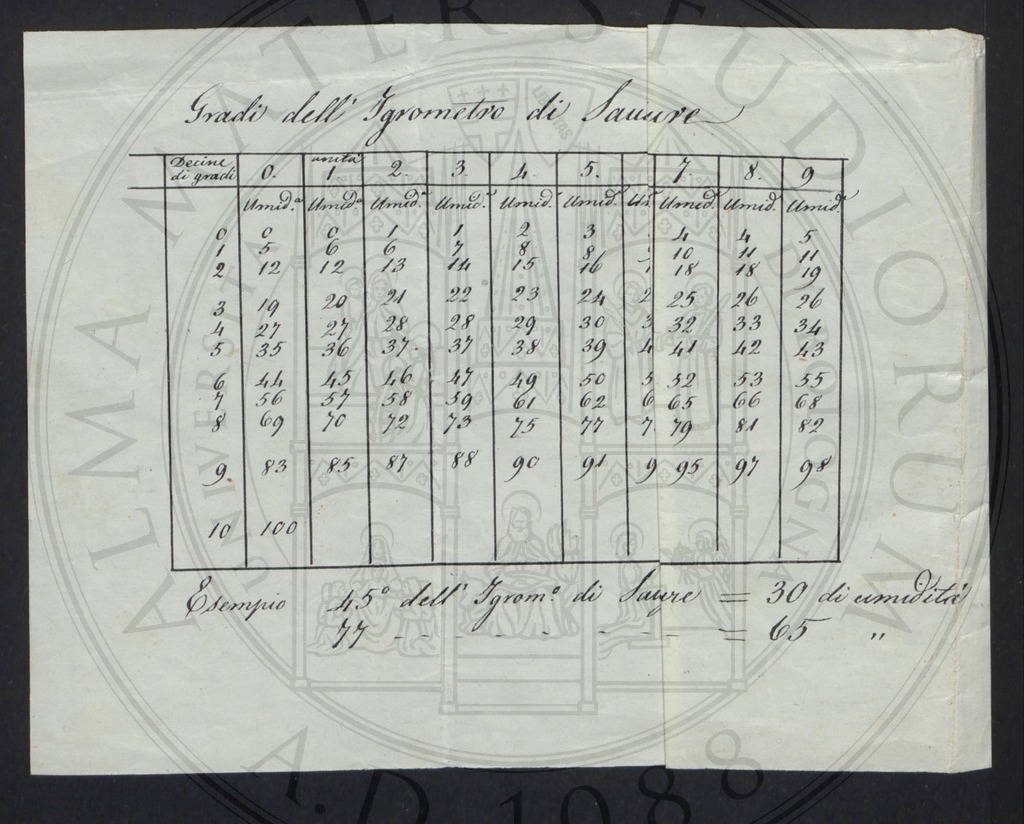 Gradi dell' Igrometro di Sauure
Decine di gradi 0. unita 1. 2. 3. 4. 5. 7. 8. 9
Umid.ª Umid.ª Umid.ª Umid.ª Umid.ª Umid.ª U Umid.ª Umid.ª Umid.ª
0 0 0 1 1 2 3 4 4 5
1 5 6 6 7 8 8 10 11 11
2 12 12 13 14 15 16 1 18 18 19
3 19 20 21 22 23 24 2 25 26 26
4 27 27 28 28 29 30 3 32 33 34
5 35 36 37. 37 38 39 4 41 42 43
6 44 45 46 47 49 50 5 52 53 55
7 56 57 58 59 61 62 6 65 66 68
8 69 70 72 73 75 77 7 79 81 82
9. 83 85 87 88 90 91 9 95 97 98
10 100
Esempio 45° dell' Igrom.º di Sauure = 30 di umidità
77 - - - - - - - - = 65 "
ALMA MATER STUDIORUM
A.D. 1088